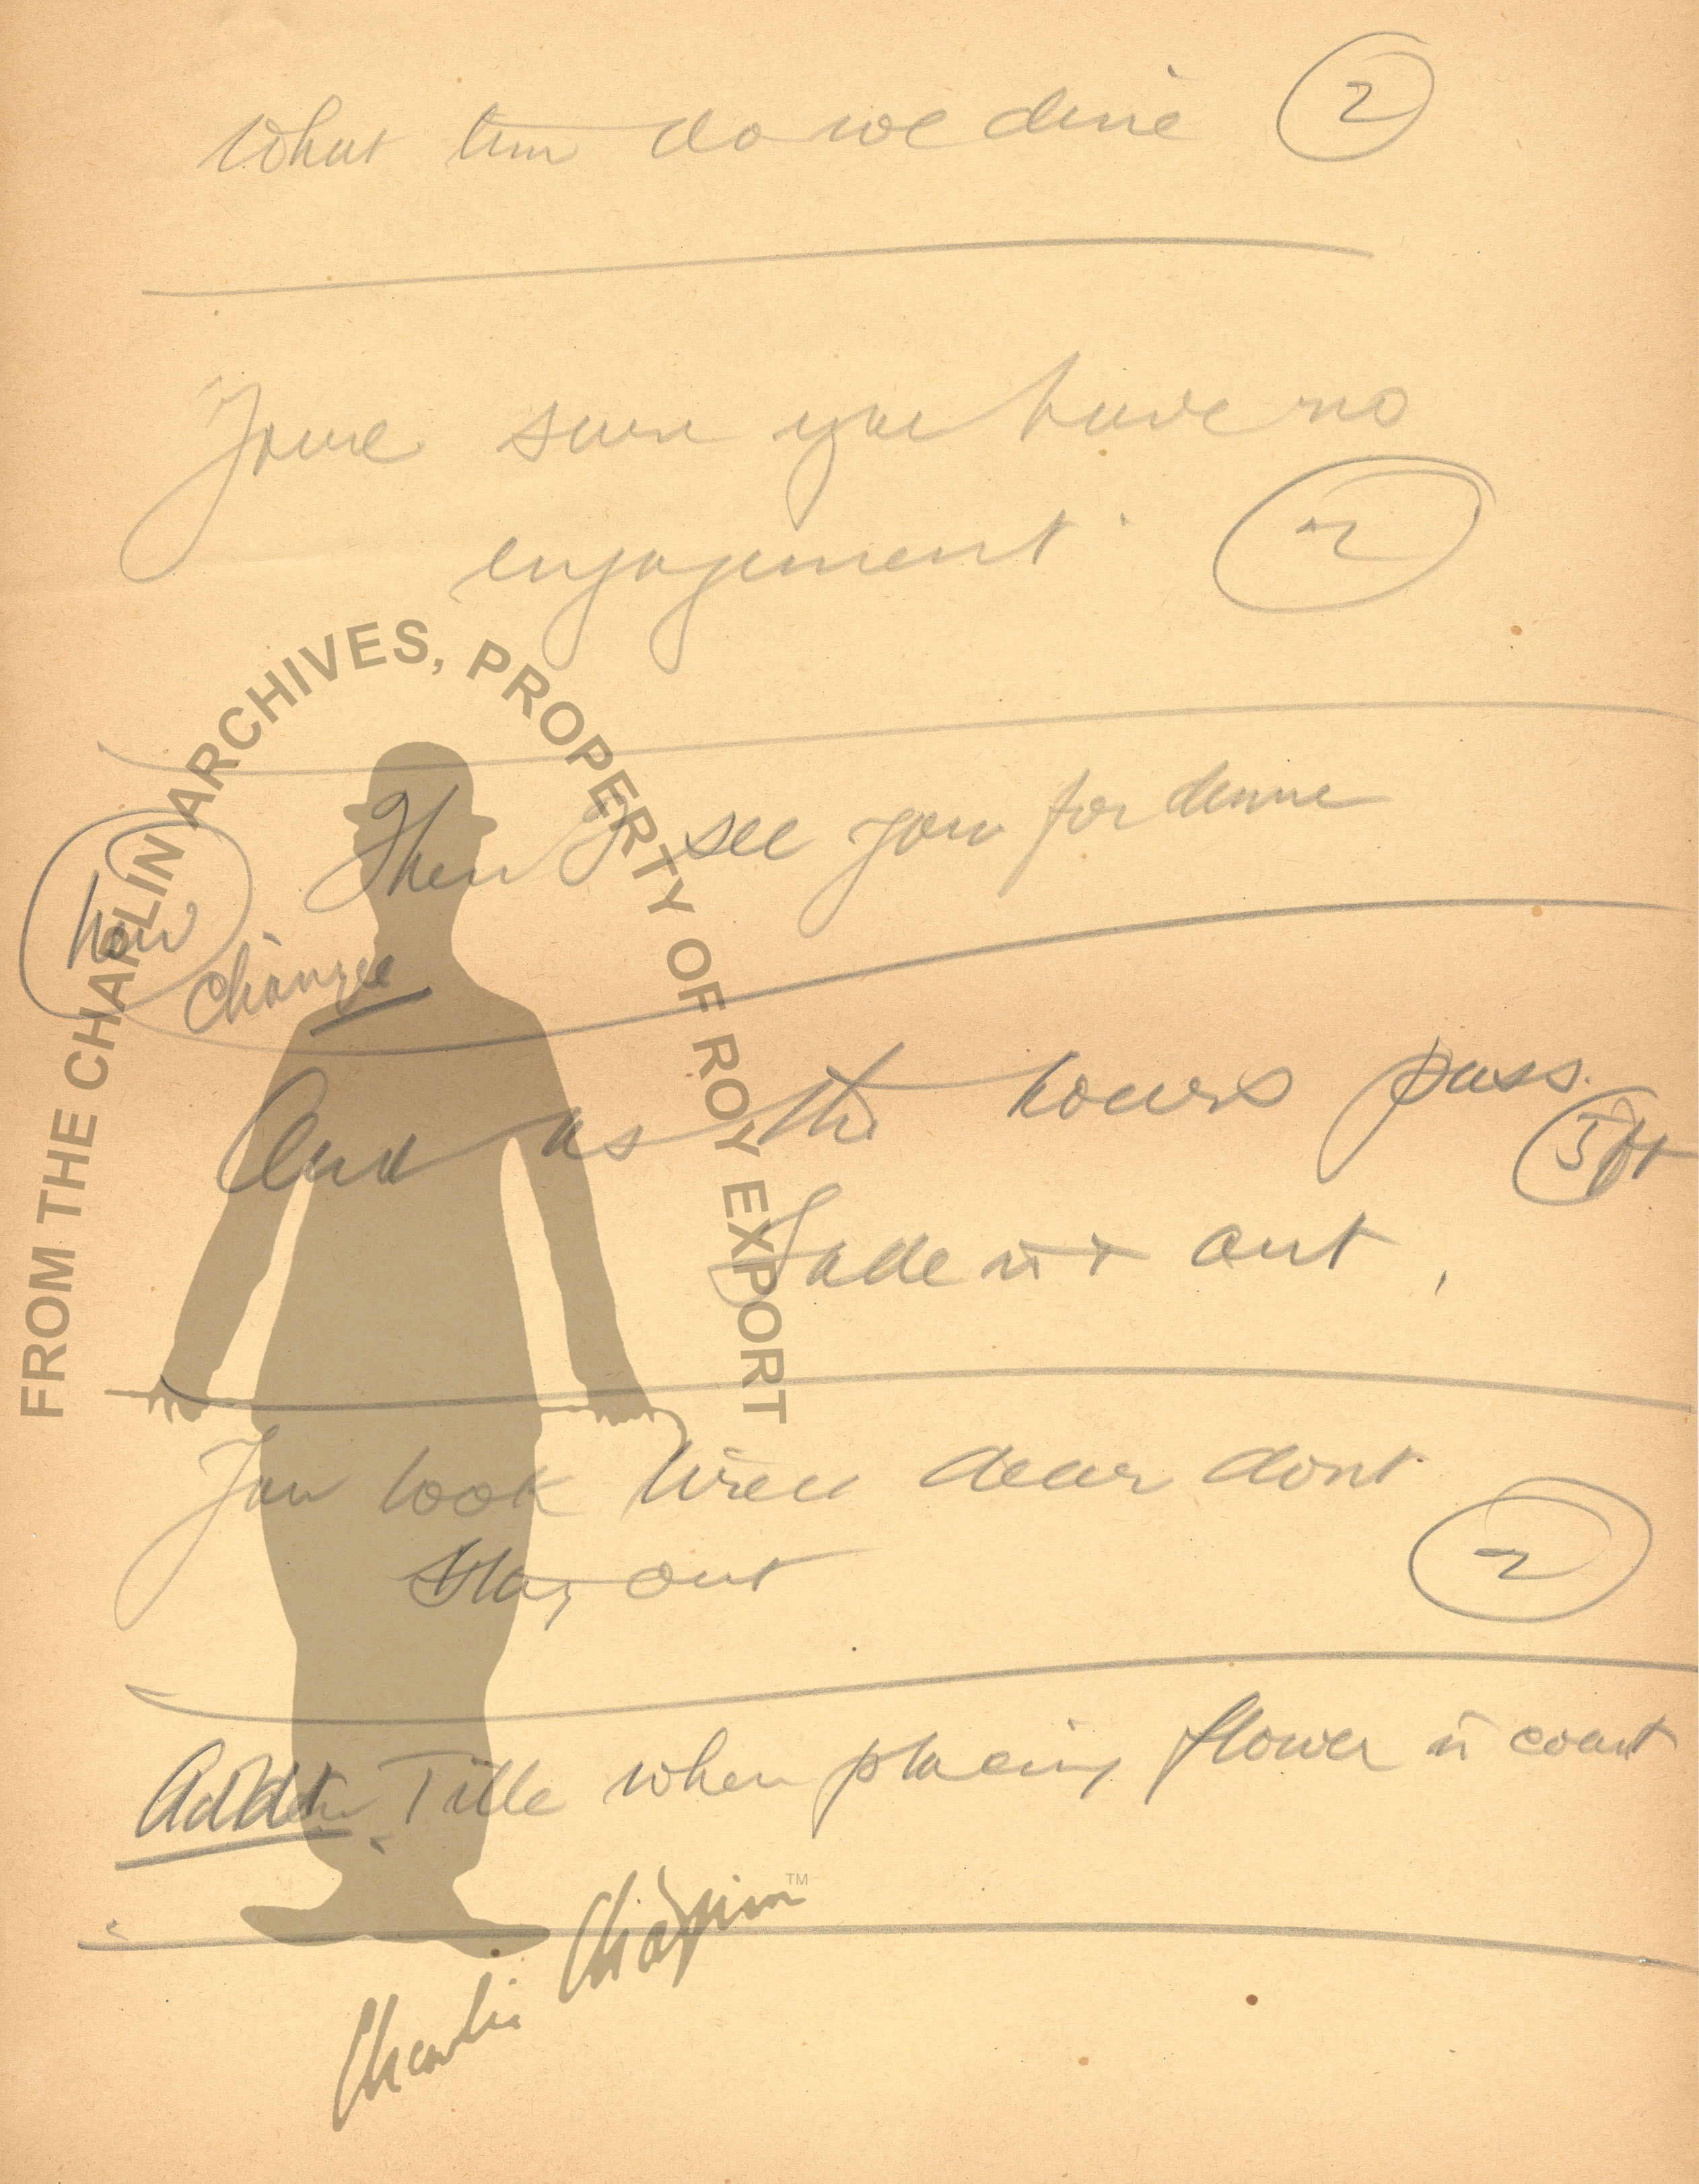 What time do we dine 2
"Youre sure you have no
engagement" 2
Then I see you for dinne
how
change
And as the hours pass.
5 ft
Fade in + out,
You look tired dear dont
stay out 2
Title when placing flower in coat
FROM THE CHAPLIN ARCHIVES, PROPERTY OF ROY EXPORT
Charlie Chaplin™